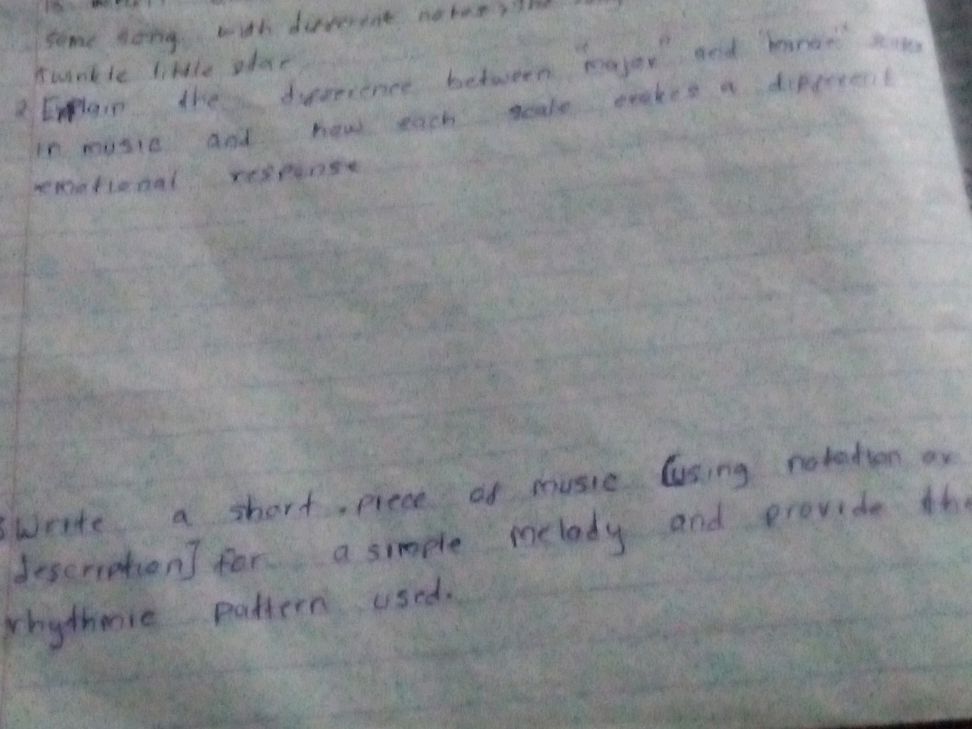 some song with different notes, the
twinkle little star
2 Explain the difference between "major" and "minor" scales
in music and how each scale evokes a different
emotional response
3 Write a short piece of music (using notation or
description] for a simple melody and provide the
rhythmic pattern used.